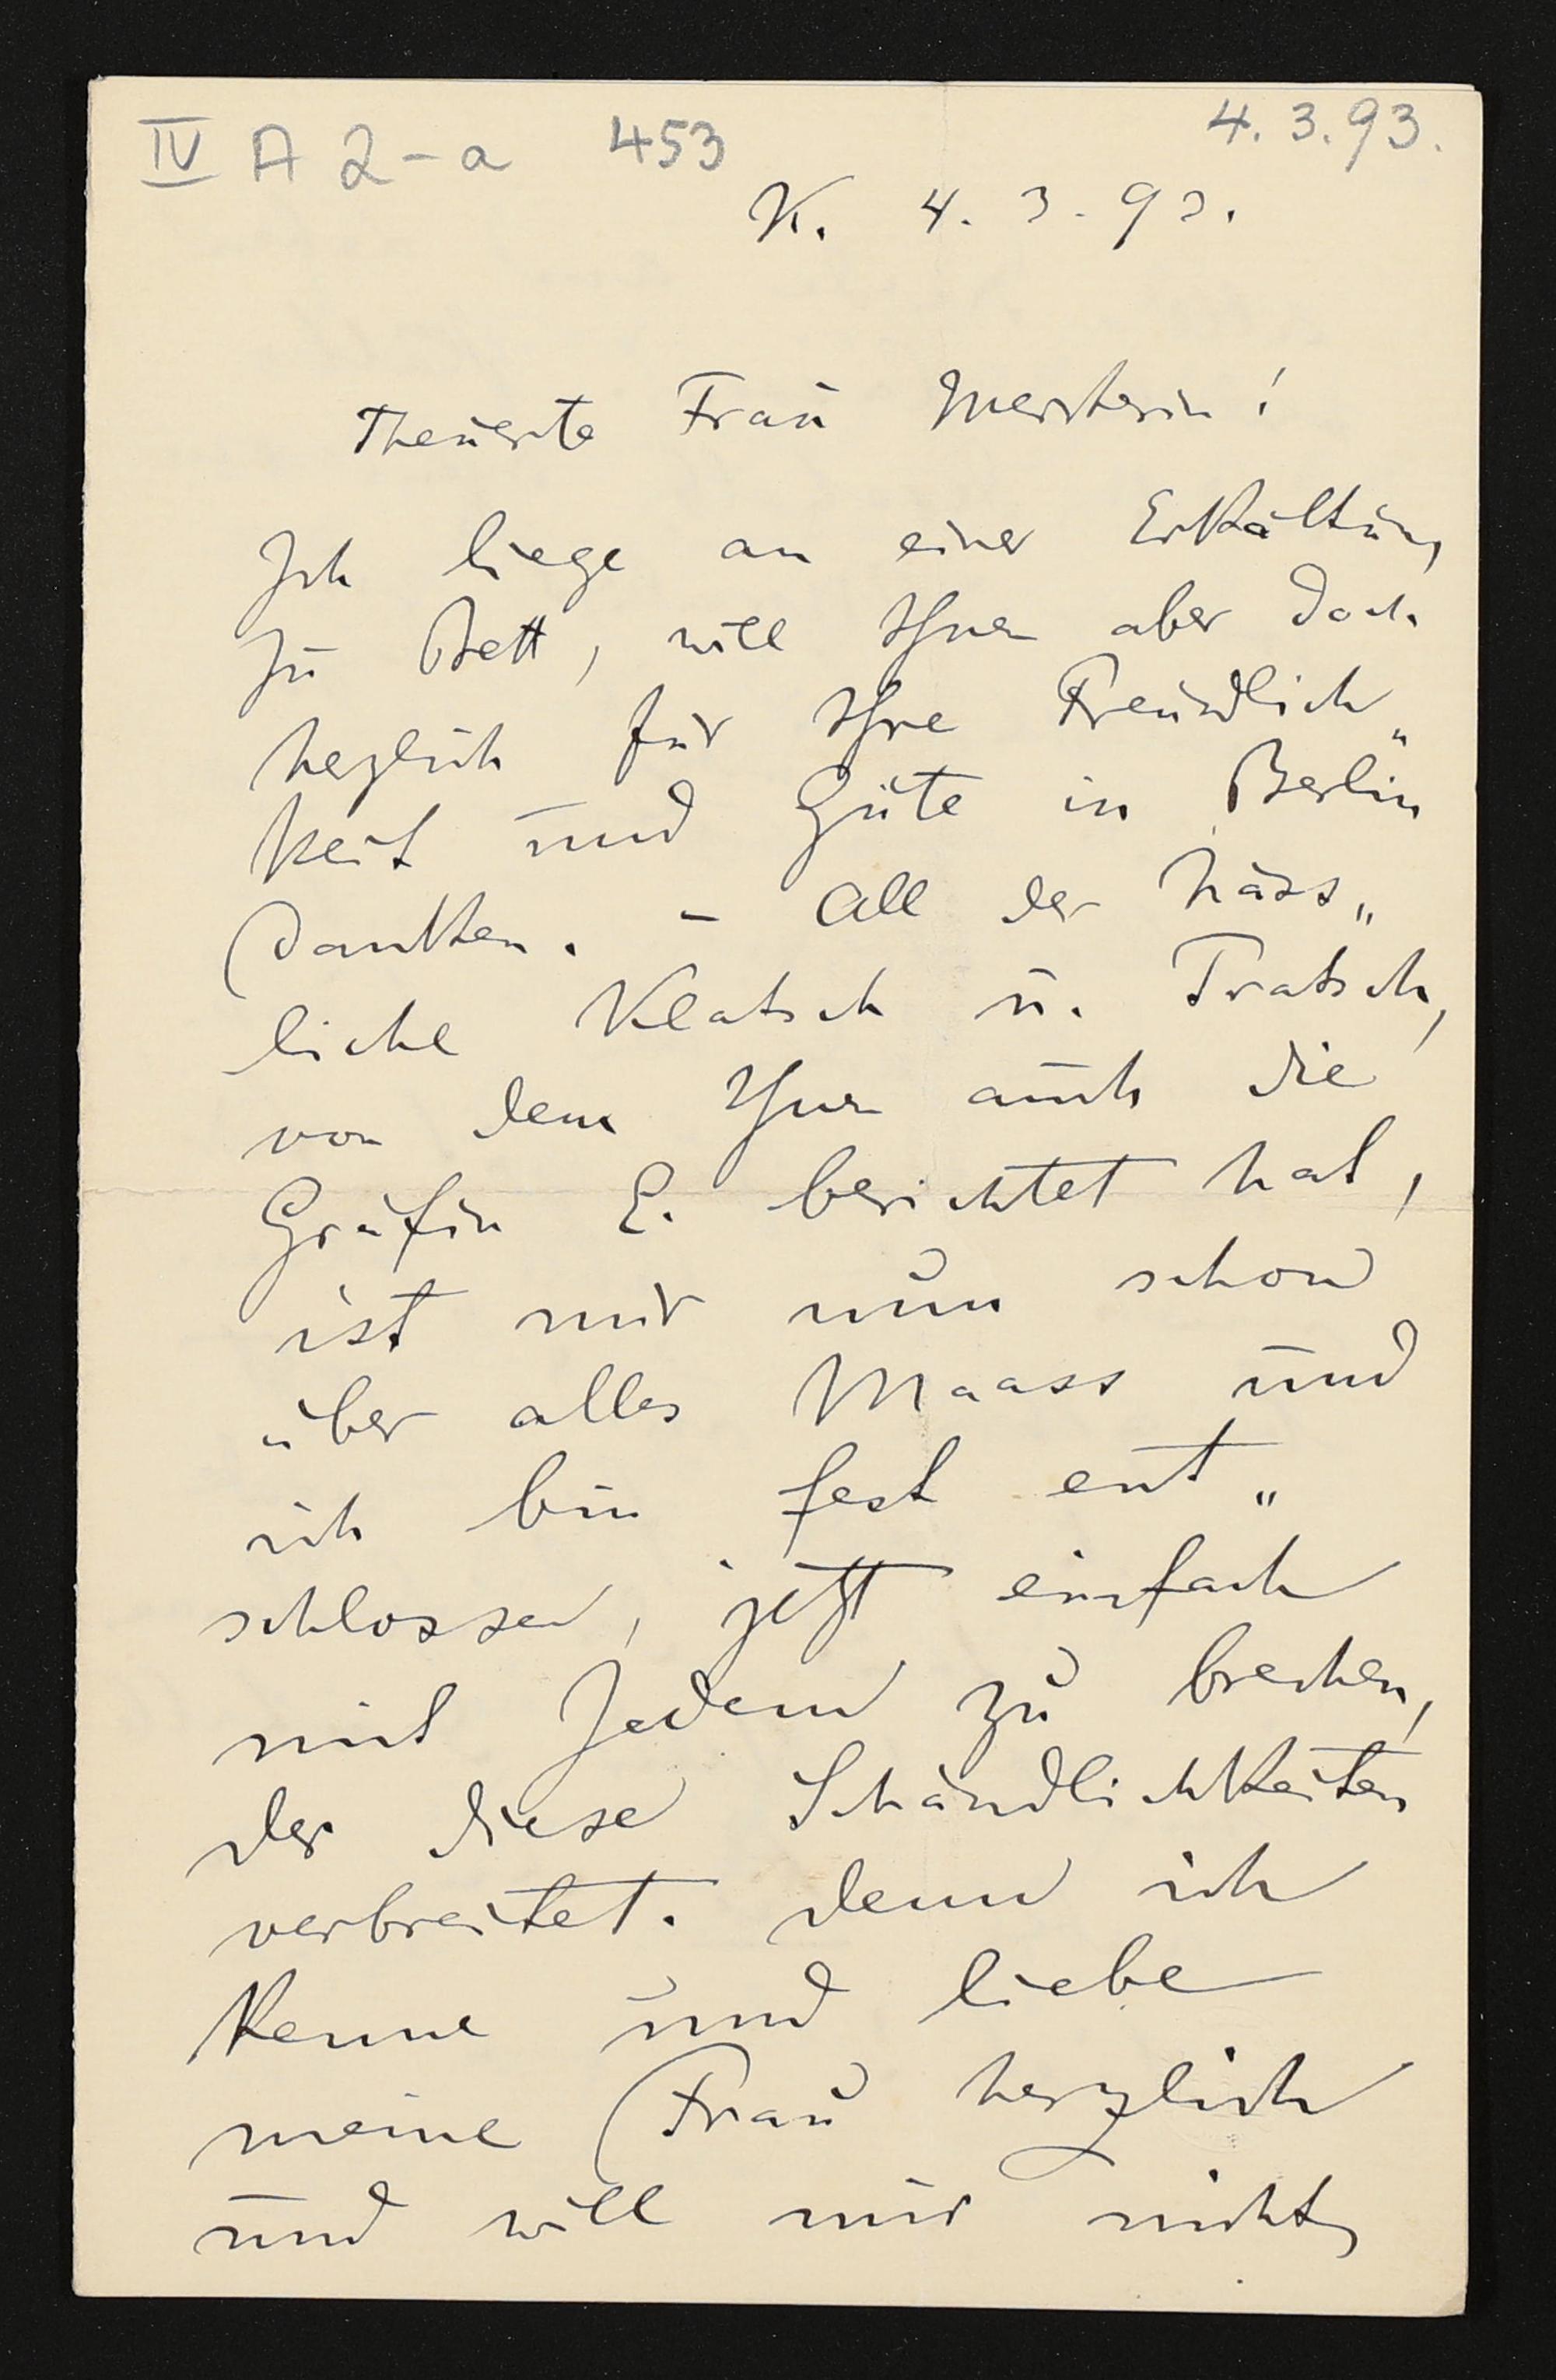 IV A 2-a 453 4.3.93.
K. 4.3.93.
Theuerste Frau Meisterin!
Ich liege an einer Erkältung
zu Bett, will Ihnen aber doch
herzlich für Ihre Freundlich„
keit und Güte in Berlin
danken. – All der häss„
liche Klatsch u. Tratsch,
von dem Ihnen auch die
Gräfin E. berichtet hat,
ist mir nun schon
über alles Maass und
ich bin fest ent„
schlossen, jetzt einfach
mit Jedem zu brechen,
der diese Schändlichkeiten
verbreitet. Denn ich
kenne und liebe
meine Frau herzlich
und will mir nicht,